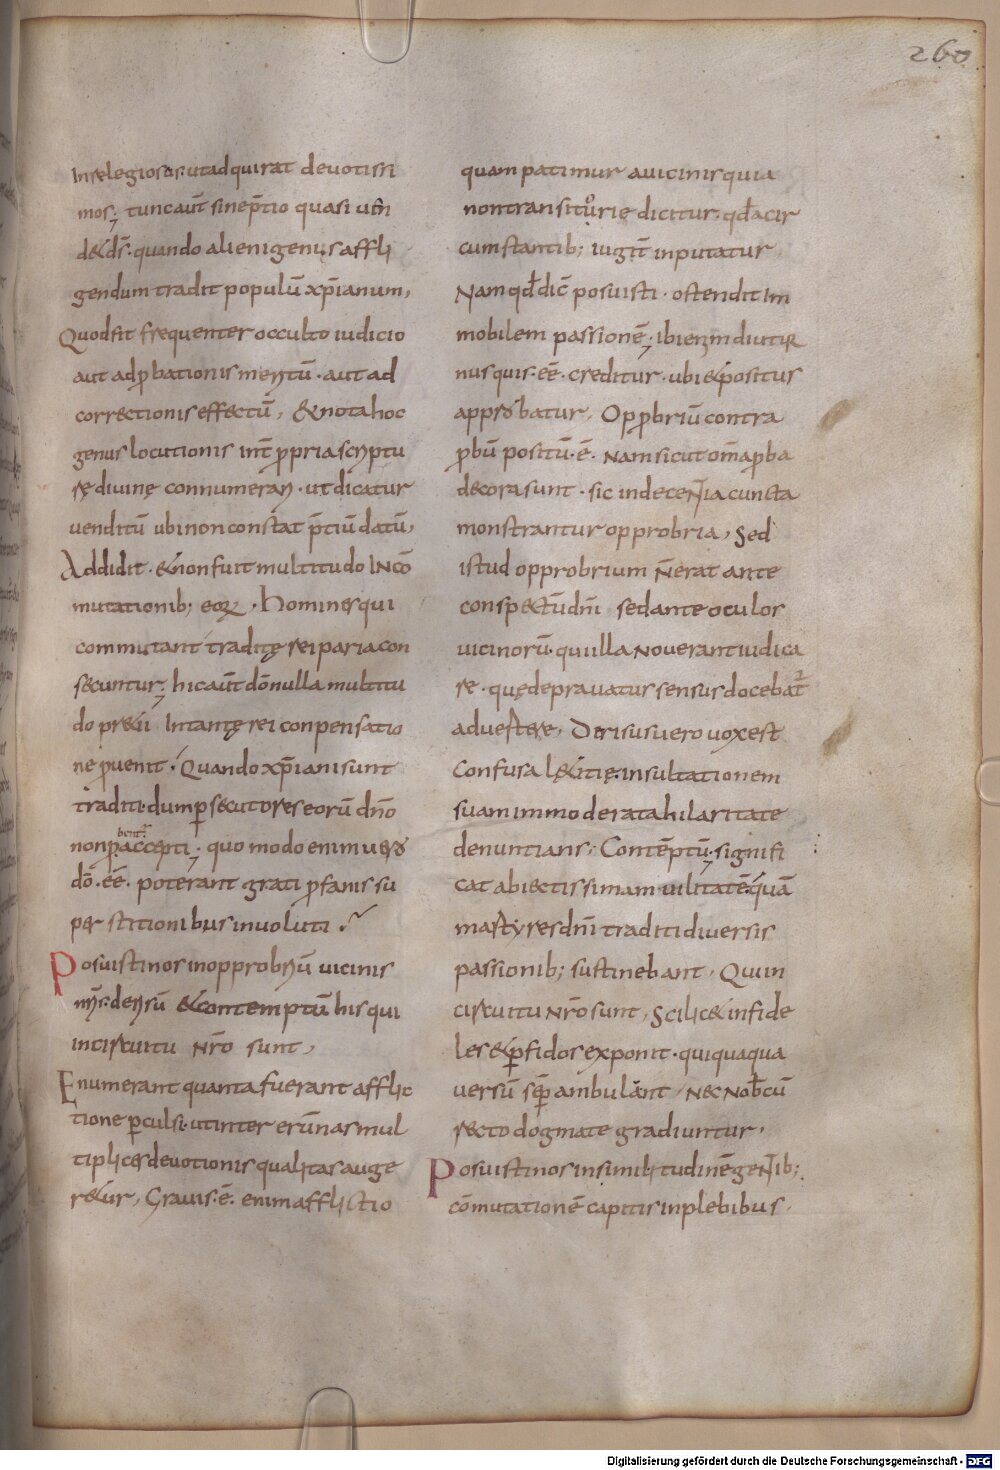 260
Inrelegiosos. ut adquirat devotissi
mos; tunc aut̄ sine p̄tio quasi utn̄
d&d̄s. quando alienigenus affli
gendum tradit populū xp̄ianum,
Quod fit frequenter occulto iudicio
aut ad ꝓbationis meritū. aut ad
correctionis effectū, & nota hoc
genus locutionis int̄ ꝓpria scriptu
rę divinę connumerari. ut dicatur
venditū ubi non constat p̄tiū datū,
Addidit. & non fuit multitudo In cō
mutationib; eoꝝ. Homines qui
commutant traditę rei paria con
secuntur; hic aut̄ dō nulla multitu
do p̄&ii In tantę rei conpensatio
ne ꝓvenit. Quando xp̄iani sunt
traditi. dum ꝑsecutores eorū dn̄o
non ꝓaccepti. quo modo enim vero
dō. eē. poterant grati ꝓfanis su
perstitionibus involuti.
Posuisti nos in opprobriū vicinis
nr̄is. derisū & contemptū his qui
in circuitu nr̄o sunt,
Enumerant quanta fuerant afflic
tione ꝑculsi. ut inter erūnas mul
tiplices devotionis qualitas auge
r&ur, Gravis. ē. enim afflictio
quam patimur a vicinis quia
non transiturię dicitur. qđ a cir
cumstantib; iugit̄ inputatur
Nam qđ dic̄ posuisti. ostendit im
mobilem passionē; ibi enim diutiꝰ
nus quis. eē. creditur. ubi & positus
approbatur, Opꝓbriū contra
ꝓbū positū. ē. nam sicut om̄a ꝓba
decora sunt. sic indecentia cuncta
monstrantur opprobria, Sed
istud opprobrium n̄ erat ante
conspectū dn̄i sed ante oculos
vicinorū. qui illa noverant iudica
re. quę depravatur sensus docebat̄
advertere, Derisus vero vox est
confusa lętitię. insultationem
suam immoderata hilaritate
denuntians. Contēptū. signifi
cat abiectissimam vilitatē. quā
martyres dn̄i traditi diversis
passionib; sustinebant. Qui in
circuitu nr̄o sunt, Scilic& infide
les & ꝑfidos exponit. qui quaqua
versū sēp ambulant, nec nobcū
recto dogmate gradiuntur.
Posuisti nos in similitudinē gentib;
cōmutationē capitis in plebibus.
Digitalisierung gefördert durch die Deutsche Forschungsgemeinschaft - DFG